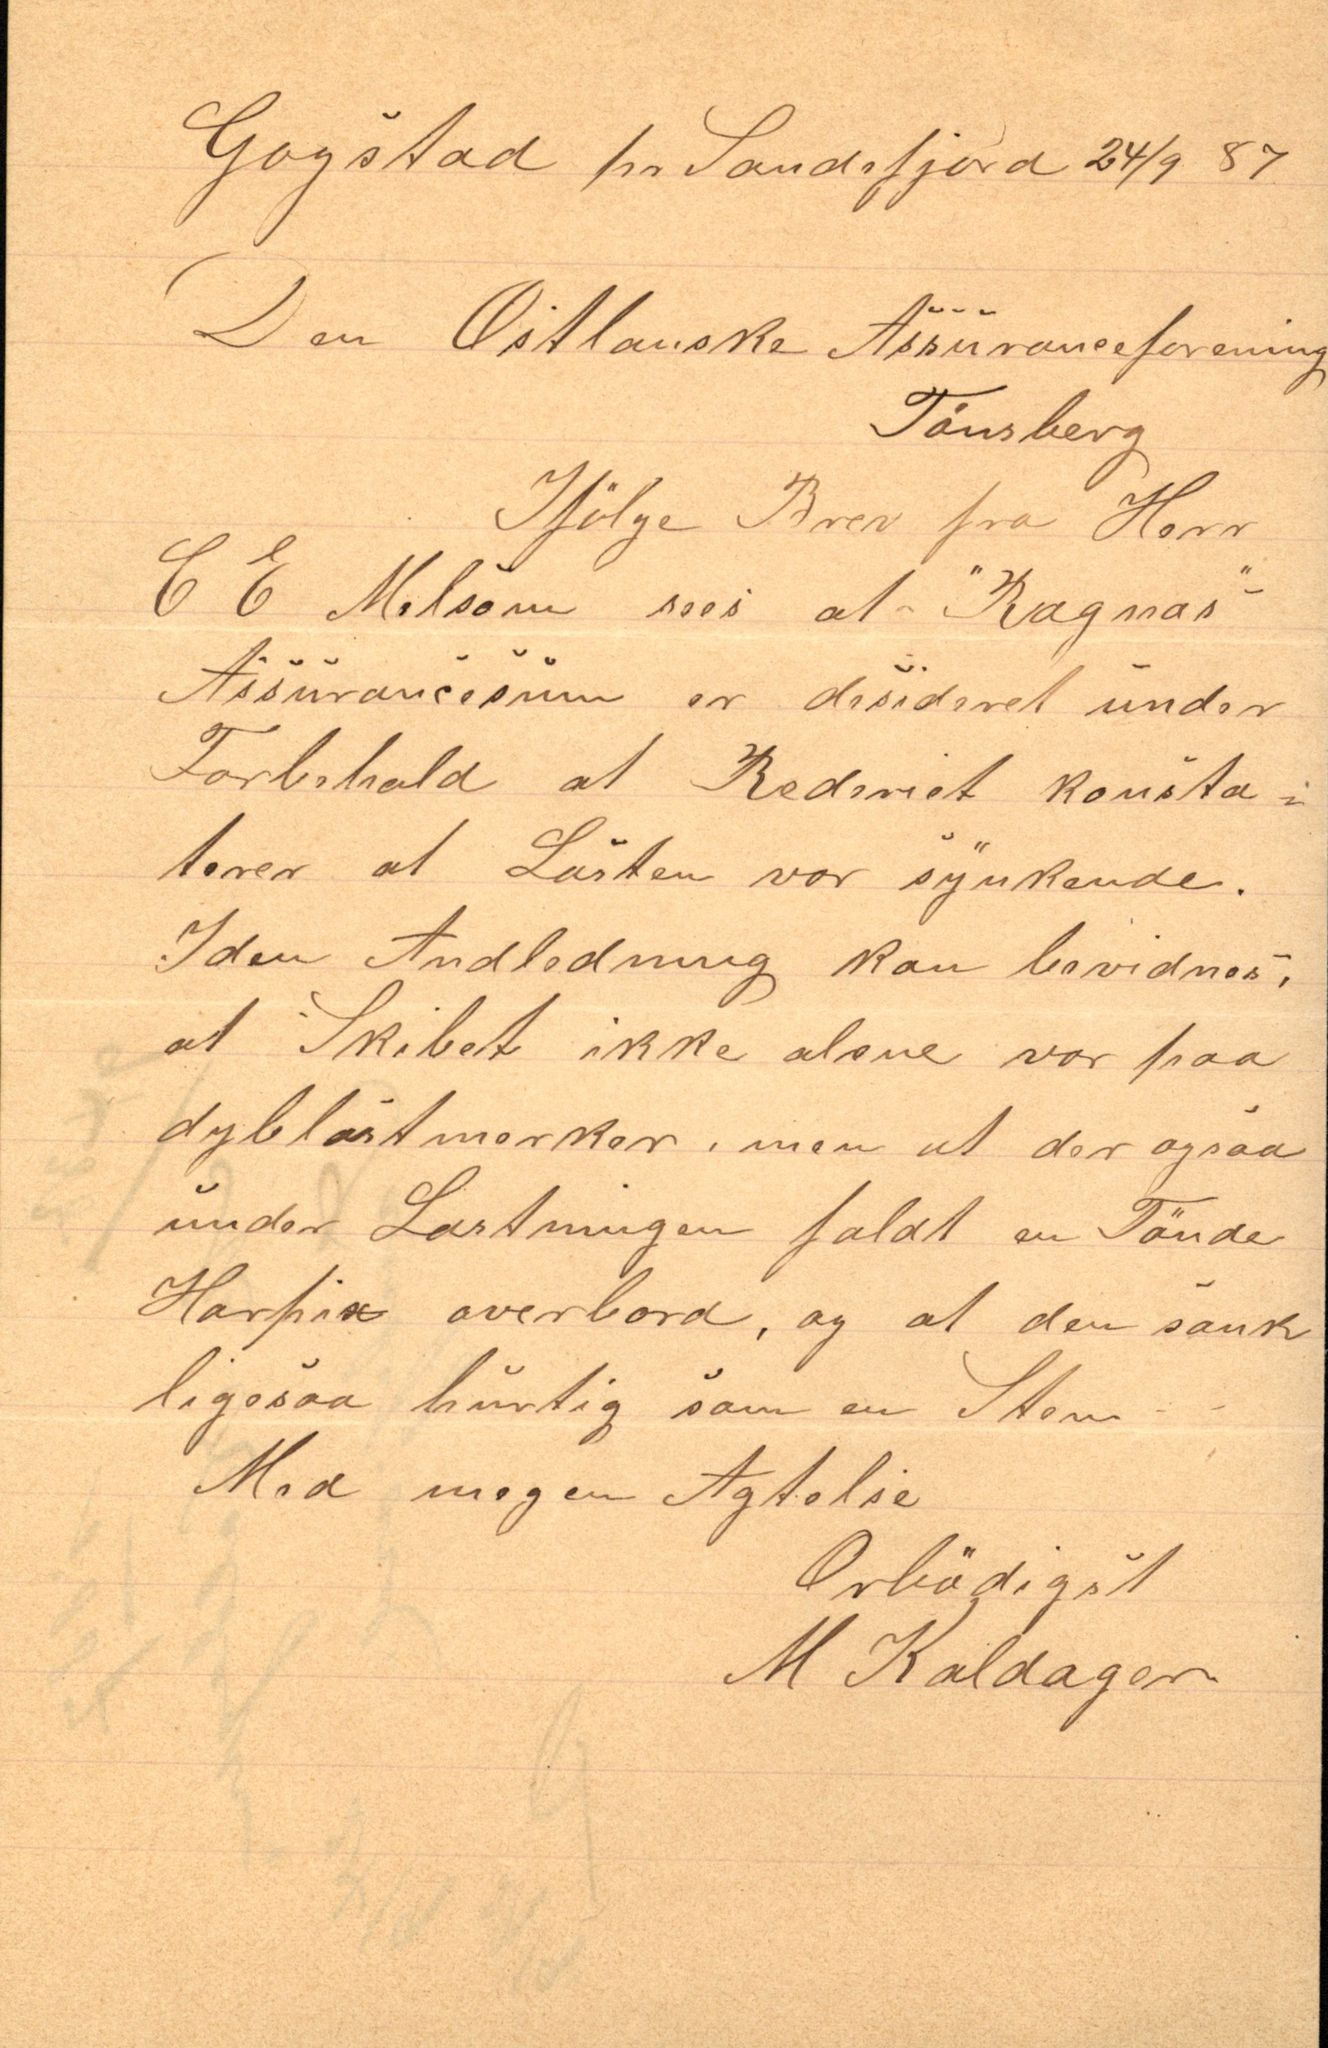 Gogstad pr Sandefjord 24/9 87
Den Östlanske Assuranceforening
Tönsberg
Ifölge Brev fra Herr
C E Melsom sees at "Ragnas"
Assurancesum er desideret under
Forbehold at Rederiet konsta=
terer at Lasten var synkende.
Iden Andledning kan bevidnes,
at Skibet ikke alene var paa
dyblastmerker, men at der ogsaa
under Lastningen faldt en Tönde
Harpix overbord, og at den sank
ligesaa hurtig som en Sten
Med megen Agtelse
Örbödigst
M Kaldager